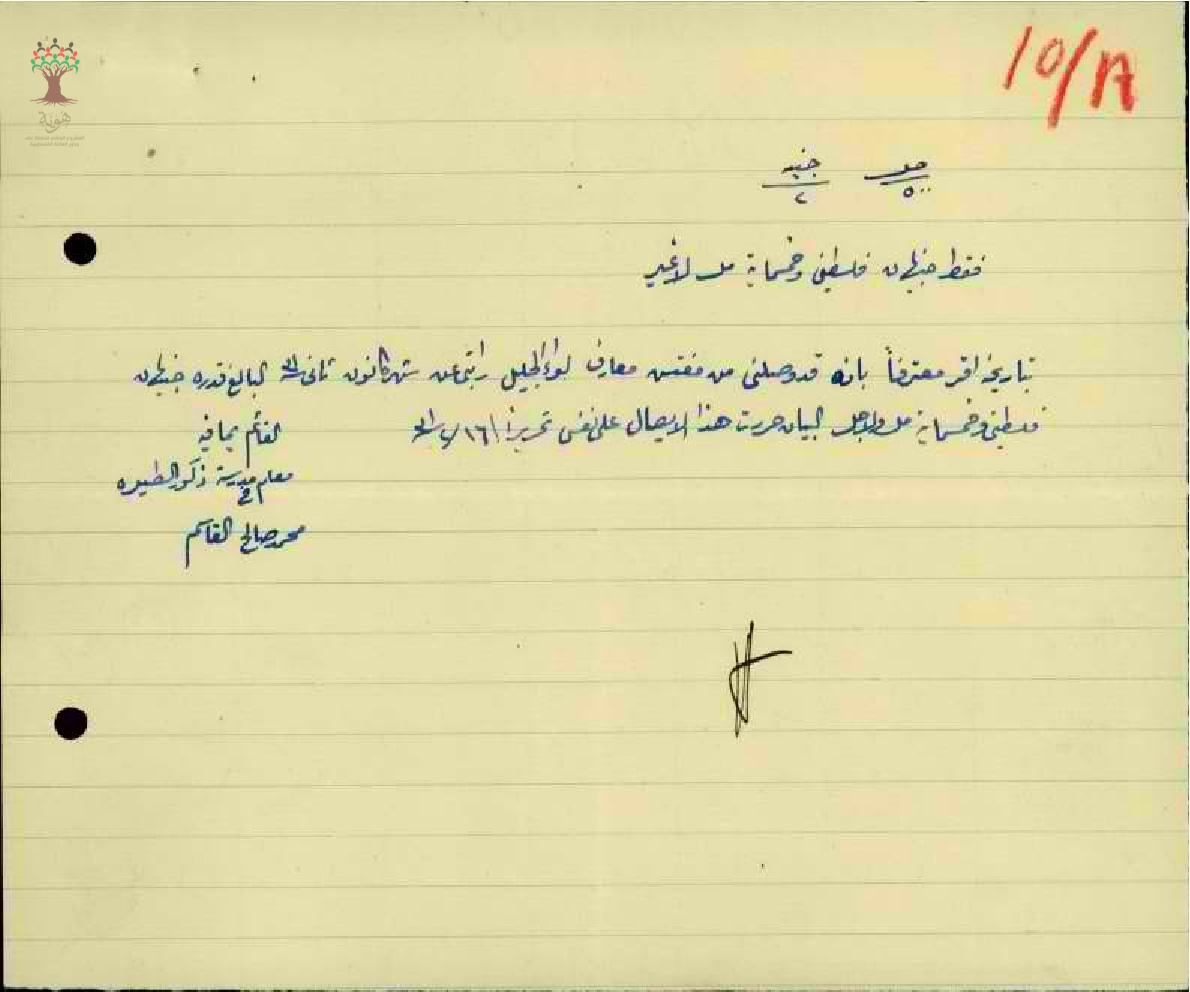 10/A
هوية
مل جنيه
٥٠٠ ٢
فقط جنيهان فلسطيني وخمسماية مل لا غير
بتاريخه اقر معترفاً بانه قد وصلني من مفتش معارف لواء الجليل راتبي عن شهر كانون ثاني البالغ قدره جنيهان
فلسطيني وخمسماية مل ولاجل البيان حررت هذا الايصال على نفسي تحريراً
القائم بما فيه
معلم في مدرسة ذكور الطيره
محمد صالح القاسم